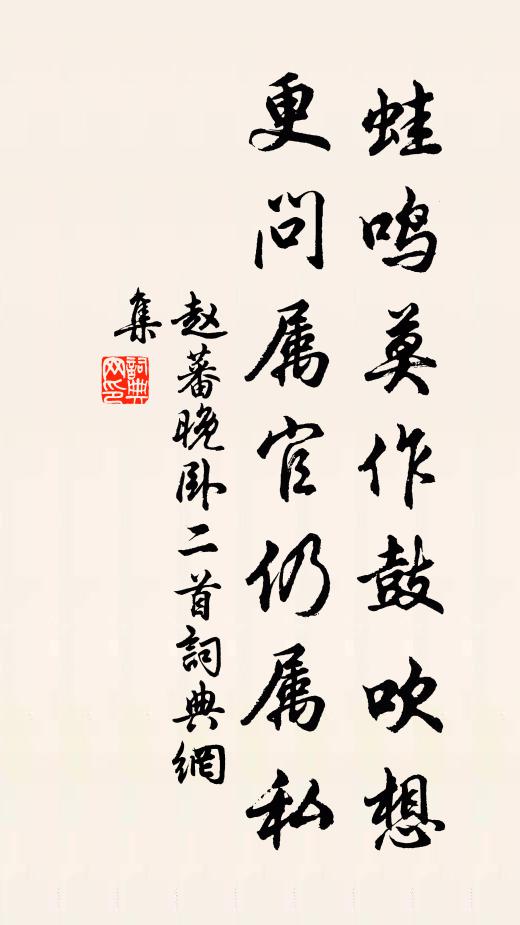 蛙鸣莫作鼓吹想
更问属官仍属私
赵蕃晚卧二首詞典網
集
詞典
网印